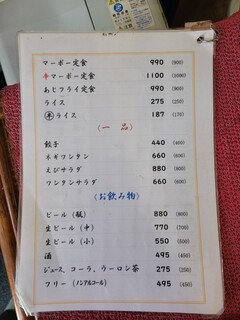 マーボー定食 990 (900)
辛マーボー定食 1100 (1000)
あじフライ定食 990 (900)
ライス 275 (250)
半ライス 187 (170)
(一品)
餃子 440 (400)
ネギワンタン 660 (600)
えびサラダ 880 (800)
ワンタンサラダ 660 (600)
(お飲み物)
ビール (瓶) 880 (800)
生ビール (中) 770 (700)
生ビール (小) 550 (500)
酒 495 (450)
ジュース、コーラ、ウーロン茶 275 (250)
フリー (ノンアルコール) 495 (450)